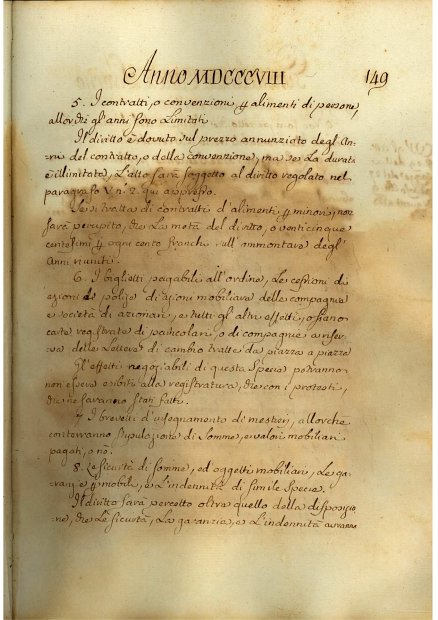 Anno MDCCCVIII 149
5. I contratti, o convenzioni p alimenti di persone,
allorchè gl'anni sono Limitati
Il diritto è dovuto sul prezzo annunziato degl'An-
ni del contratto, o della convenzione, ma se La durata
è illimitata, L'atto sarà soggetto al diritto regolato nel
paragrafo V n. 2 qui appresso.
Se si tratta di contratti d'alimenti p minori, non
sarà percepito, che La metà del diritto, o venticinque
centesimi p ogni cento franchi sull'ammontare degl'
Anni riuniti.
6. I biglietti pagabili all'ordine, Le cessioni di
azioni di polize di azioni mobiliare delle compagnie
e società di azionari, e tutti gl'altri effetti, o siano
carte registrate di particolari, o di compagnie a riser-
va delle Lettere di cambio tratte da piazza a piazza
Gl'effetti negoziabili di questa Specie potranno
non essere esibiti alla registratura, che con i protesti,
che ne saranno stati fatti.
7. I brevetti d'insegnamento di mestieri, allorche
conterranno stipulazione di Somme, e valori mobiliari
pagati, o no.
8. Le sicurtà di somme, ed oggetti mobiliari, Le ga-
ranzie mobili, e L'indennità di simile Specie.
Il diritto sarà percetto oltre quello della disposizio-
ne, che Le sicurtà, La garanzia, e L'indennità avranno